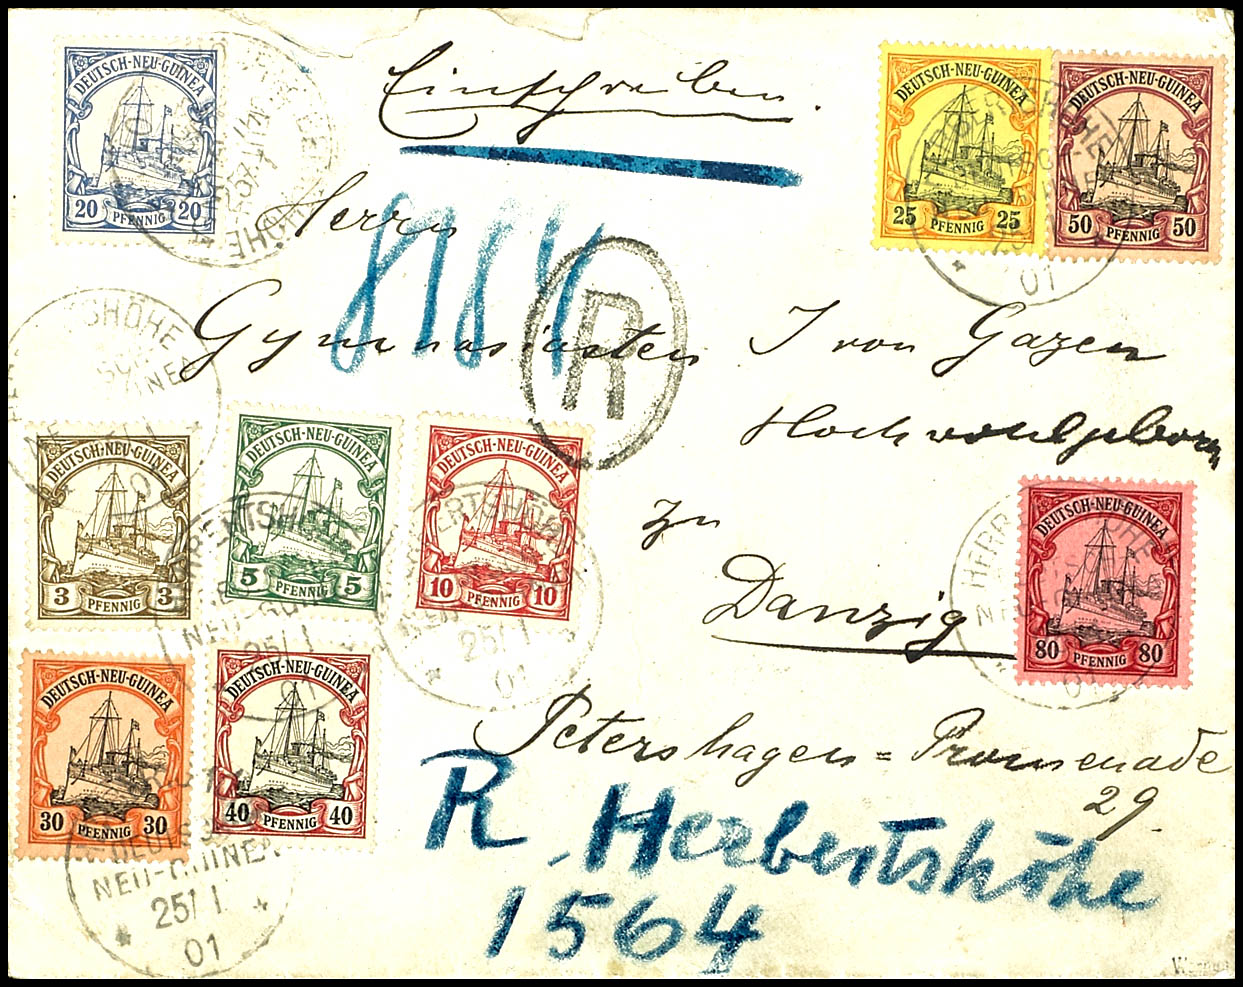 Einschreiben.
DEUTSCH-NEU-GUINEA
20 PFENNIG 20
DEUTSCH-NEU-GUINEA
25 PFENNIG 25
DEUTSCH-NEU-GUINEA
50 PFENNIG 50
Herrn
R
Gymnasiasten J von Gazen
Hochwohlgeboren
DEUTSCH-NEU-GUINEA
3 PFENNIG 3
DEUTSCH-NEU-GUINEA
5 PFENNIG 5
DEUTSCH-NEU-GUINEA
10 PFENNIG 10
zu
Danzig
DEUTSCH-NEU-GUINEA
80 PFENNIG 80
25/1
01
DEUTSCH-NEU-GUINEA
30 PFENNIG 30
DEUTSCH-NEU-GUINEA
40 PFENNIG 40
Petershagen = Promenade
29.
R. Herbertshöhe
1564
NEU-GUINEA
25/1.
01